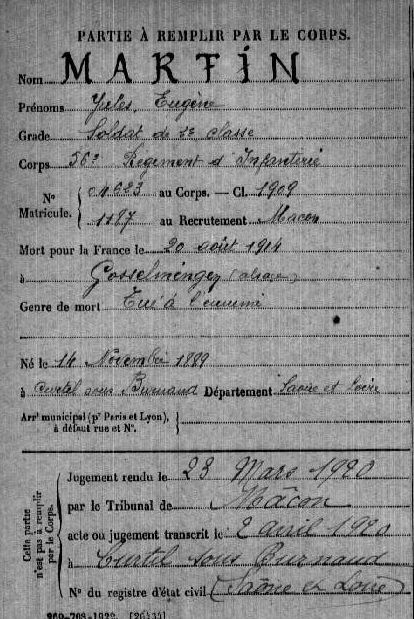 PARTIE À REMPLIR PAR LE CORPS.
Nom MARTIN
Prénoms Jules, Eugène
Grade Soldat de 2e classe
Corps 56e Régiment d'Infanterie
N° Matricule. 01623 au Corps. — Cl. 1909
1187 au Recrutement Macon
Mort pour la France le 20 août 1914
à Gosselmingen (alsace)
Genre de mort Tué à l'ennemi
Né le 14 Novembre 1889
à Curtil sous Burnand Département Saône et Loire
Arrt municipal (pr Paris et Lyon),
à défaut rue et N°.
Cette partie n'est pas à remplir par le Corps.
Jugement rendu le 23 Mars 1920
par le Tribunal de Mâcon
acte ou jugement transcrit le 2 avril 1920
à Curtil sous Burnand
N° du registre d'état civil (Saône et Loire)
269-708-1922. [26434]